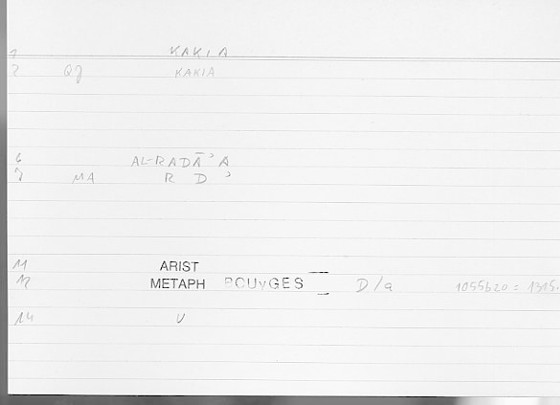 1 KAKIA
2 QJ KAKIA
6 AL-RADĀʾA
7 MA R D ʾ
11 ARIST
12 METAPH BOUYGES D/a 1055b20 = 1315.
14 V